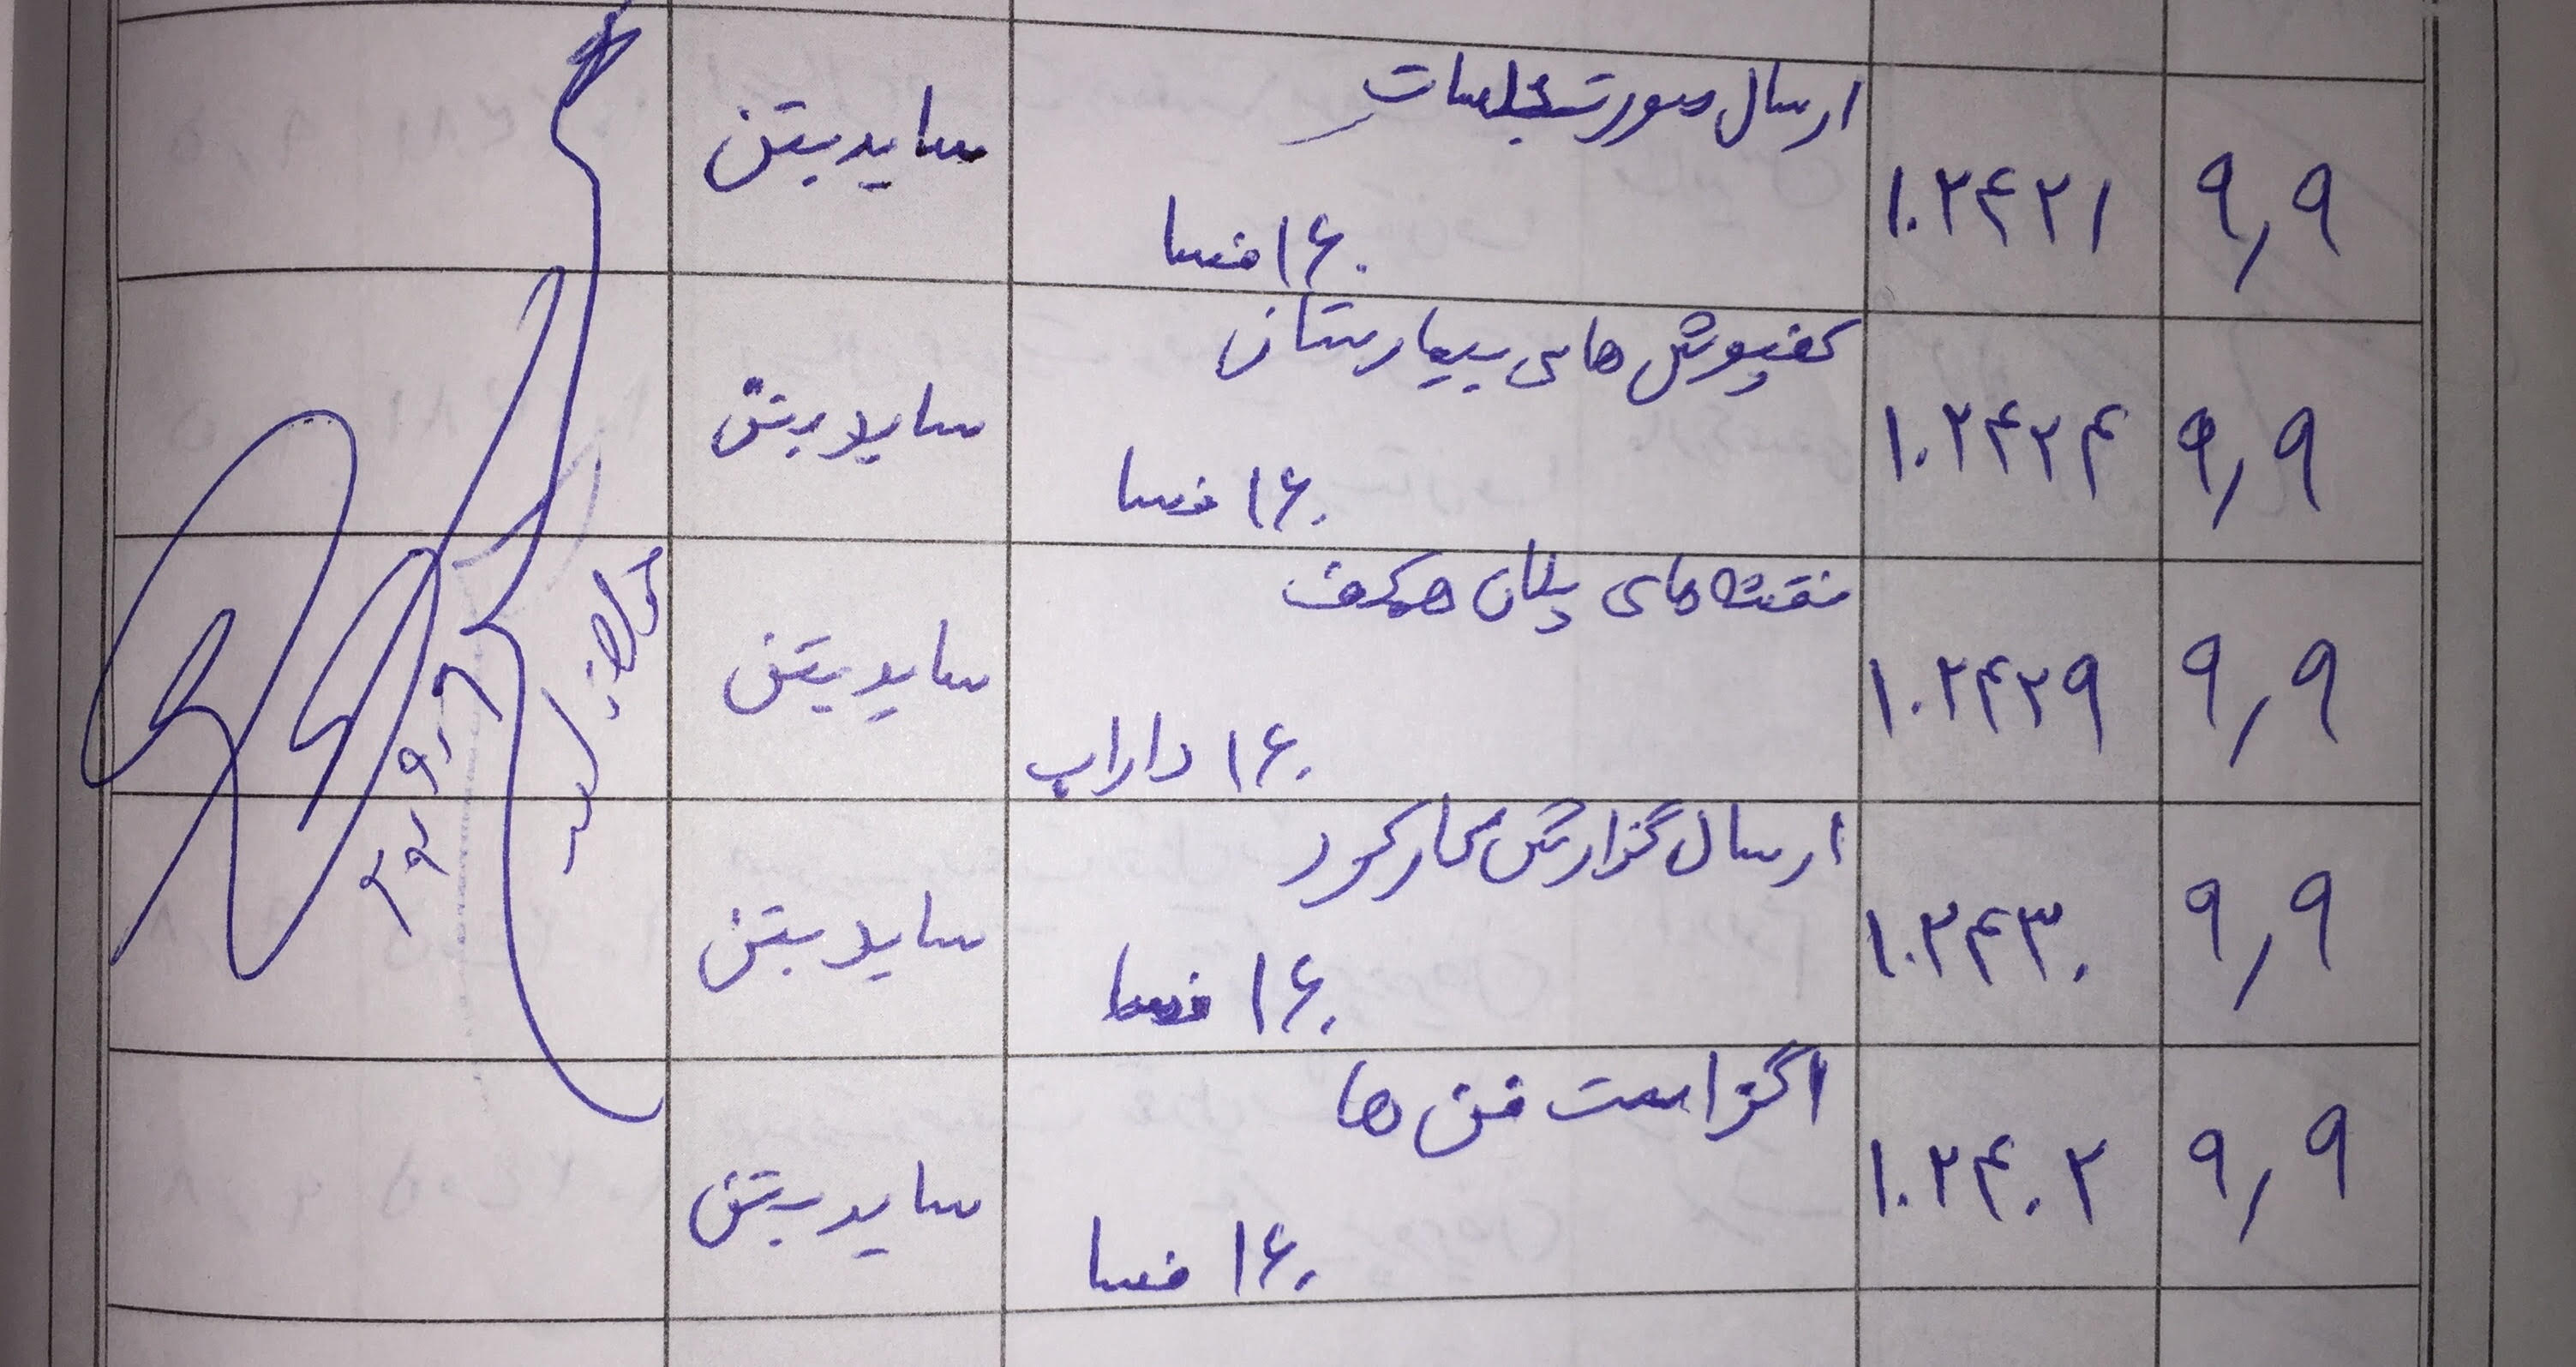 ۹٫۹ ۱۰۲۴۲۱ ارسال صورتجلسات سایدبتن
۱۶۰ فسا
۹٫۹ ۱۰۲۴۲۴ کفپوش های بیمارستان سایدبتن
۱۶۰ فسا
۹٫۹ ۱۰۲۴۲۹ نقشه های پلان همکف سایدبتن
۱۶۰ داراب
۹٫۹ ۱۰۲۴۳۰ ارسال گزارش کارکرد سایدبتن
۱۶۰ فسا
۹٫۹ ۱۰۲۴۰۲ اگزاست فن ها سایدبتن
۱۶۰ فسا